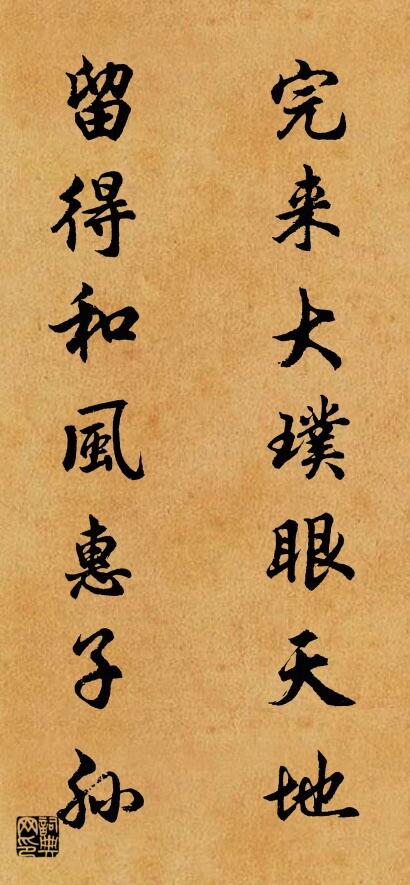 完来大璞眼天地
留得和風惠子孙
詞典网印